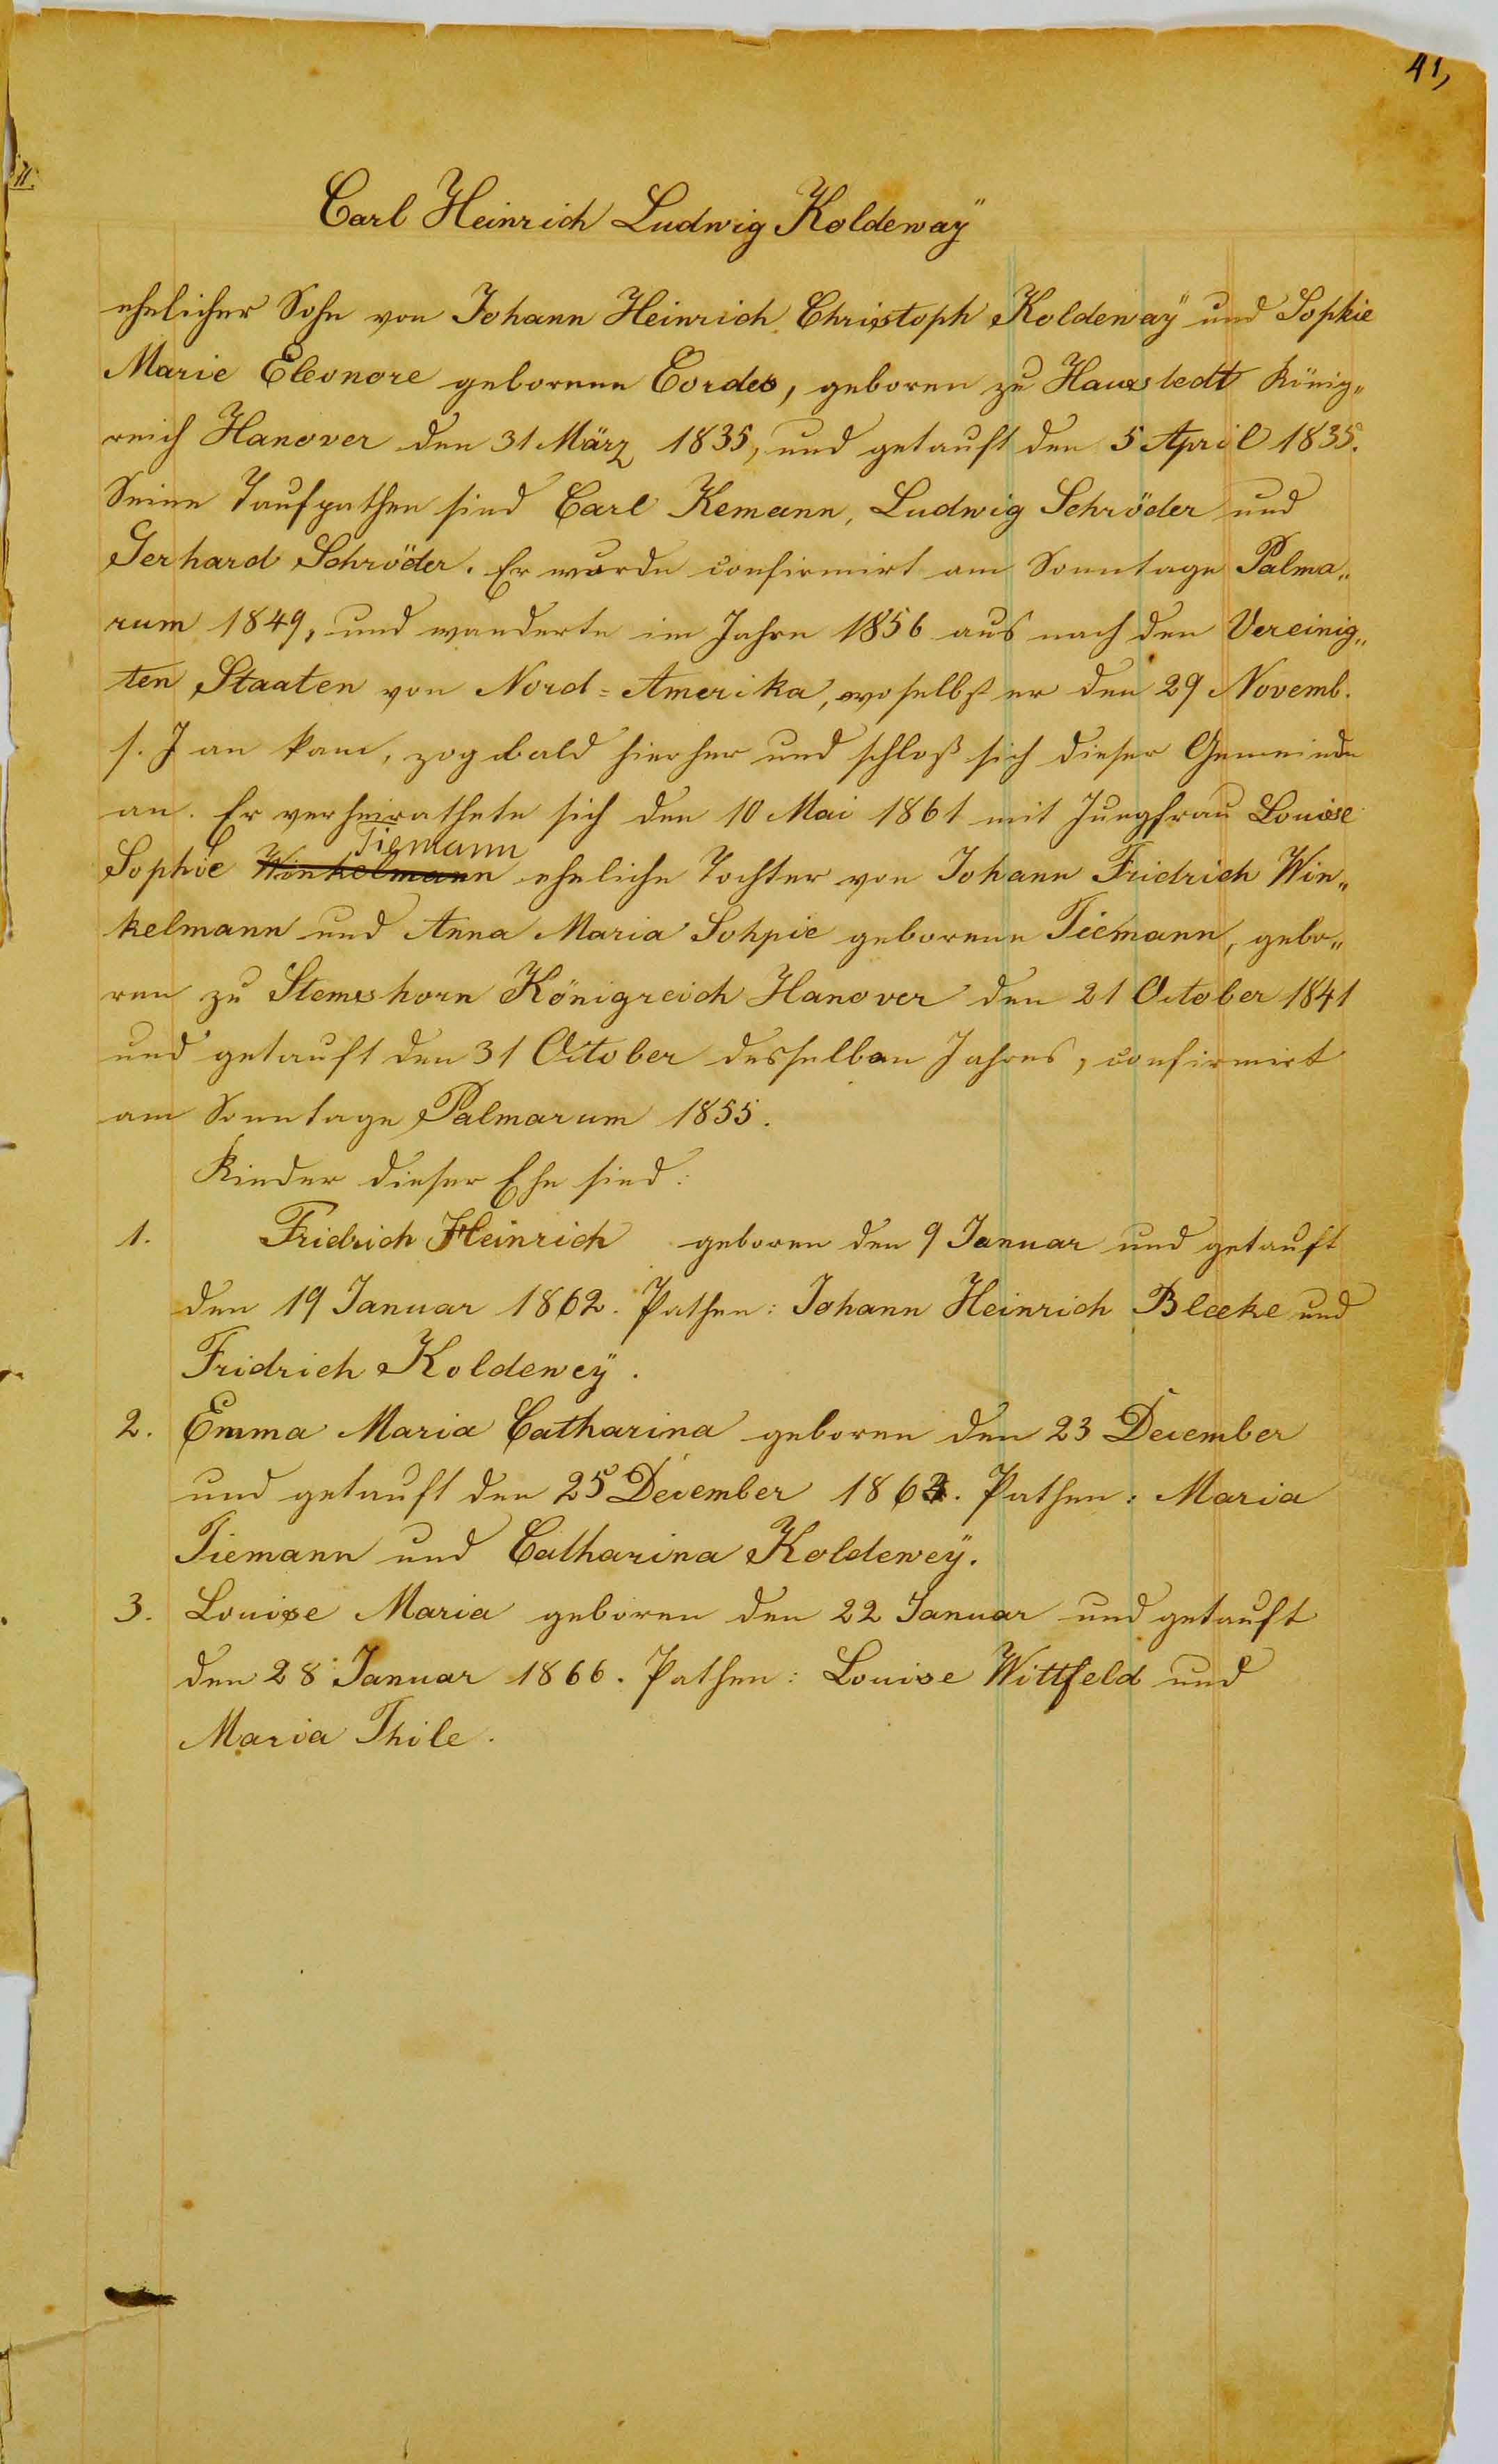 41,
Carl Heinrich Ludwig Koldeway̎
ehelicher Sohn von Johann Heinrich Christoph Kolderway̎ und Sophie
Marie Eleonore geborene Cordes, geboren zu Haustedt König„
reich Hanover den 31 März 1835, und getauft den 5 April 1835.
Seine Taufpathen sind Carl Kemann, Ludwig Schröder und
Gerhard Schröder. Er wurde confirmirt am Sonntage Palma„
rum 1849, und wanderte im Jahre 1856 aus nach den Vereinig„
ten Staaten von Nord=Amerika, woselbst er den 29 Novemb.
s. J an kam, zog bald hierher und schloß sich dieser Gemeinde
an. Er verheirathete sich den 10 Mai 1861 mit Jungfrau Louise
Tiemann
Sophie Winkelmann eheliche Tochter von Johann Fridrich Win„
kelmann und Anna Maria Sohpie geborene Tiemann, gebo„
ren zu Stemshorn Königreich Hanover den 21 October 1841
und getauft den 31 October desselben Jahres, confirmirt
am Sonntage Palmarum 1855.
Kinder dieser Ehe sind:
1. Fridrich Heinrich geboren den 9 Januar und getauft
den 19 Januar 1862. Pathen: Johann Heinrich Blæke und
Fridrich Koldeweÿ.
2. Emma Maria Catharina geboren den 23 December
und getauft den 25 December 1863. Pathen: Maria
Tiemann und Catharina Koldeweÿ.
3. Louise Maria geboren den 22 Januar und getauft
den 28 Januar 1866. Pathen: Louise Wittfeld und
Maria Thile.